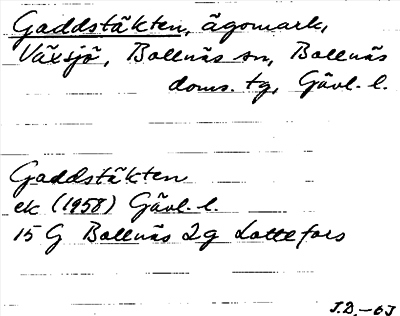 Gaddstäkten, ägomark,
Växsjö, Bollnäs sn, Bollnäs
doms. tg, Gävl. l.
Gaddstäkten
ek (1958) Gävl. l.
15 G Bollnäs 2g Lottefors
J.D. -63